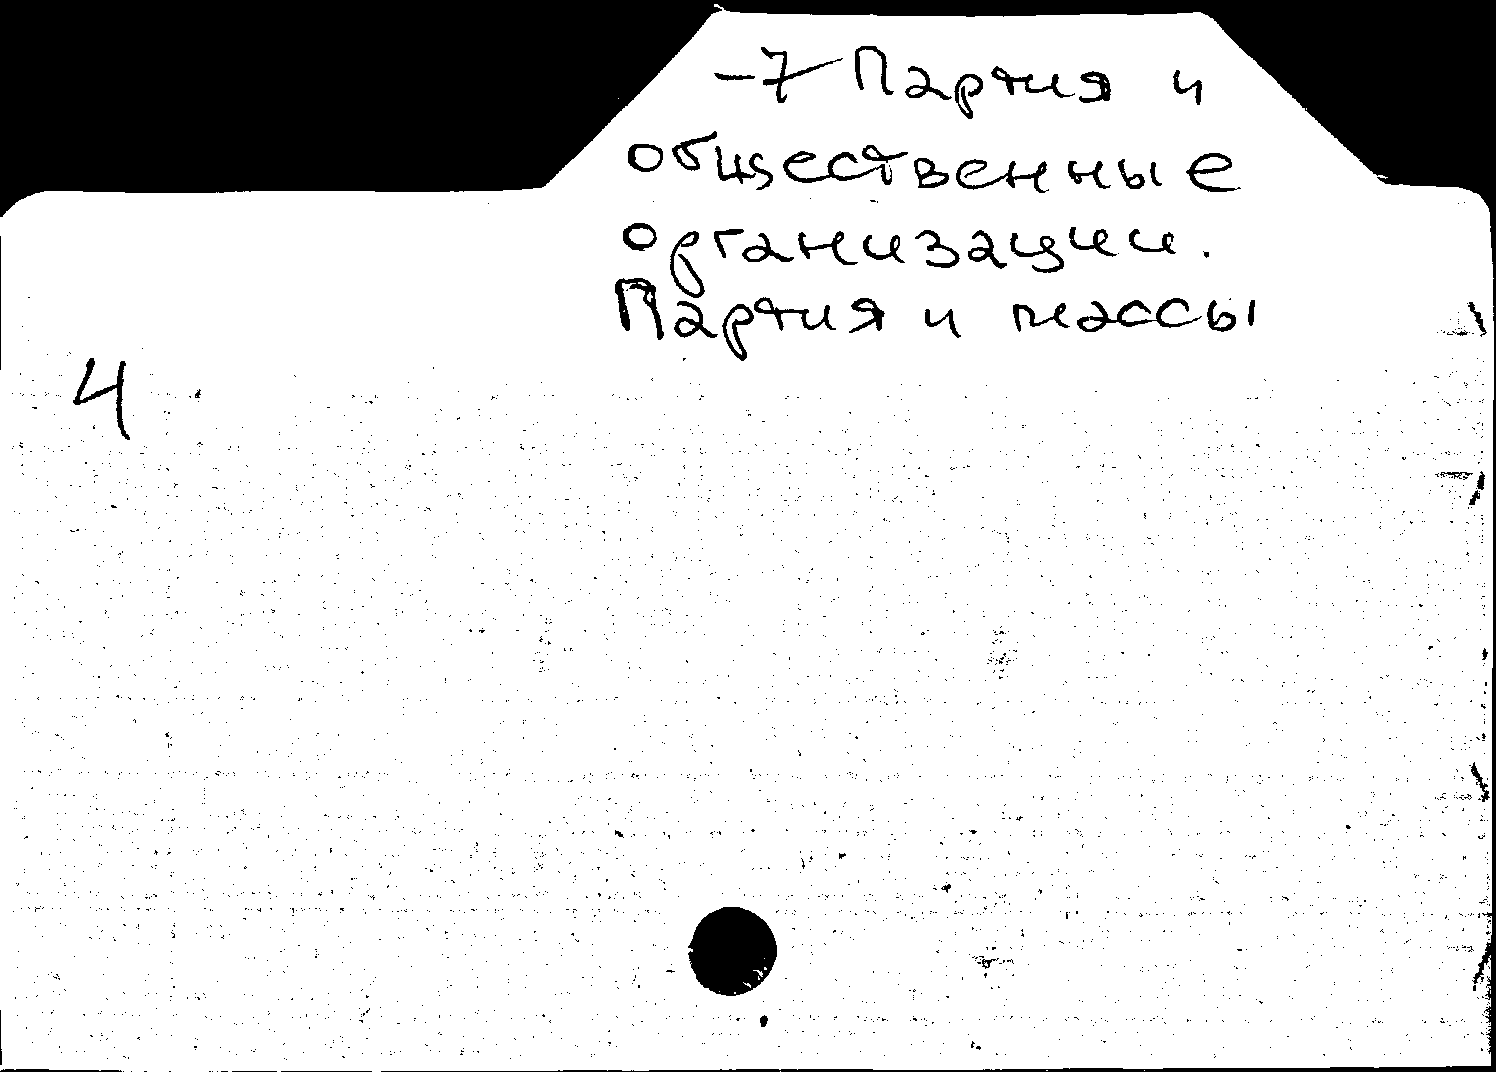 -7 Партия и
общественные
организации.
Партия и массы
4